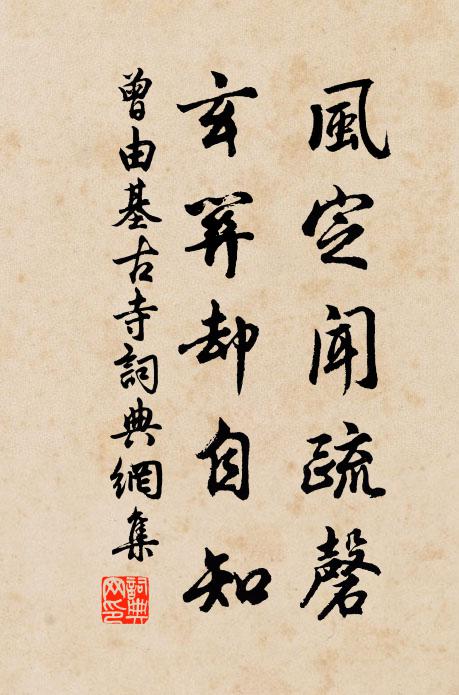 風定聞疏磬
玄筭却自知
曾由基古寺詞典網集
詞典
网印